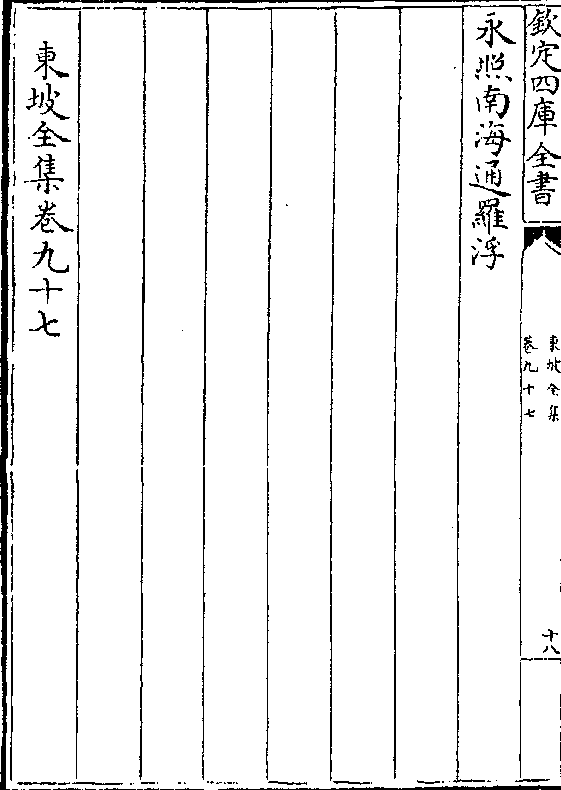 欽定四庫全書
東坡全集
卷九十七
十八
永照南海通羅浮
東坡全集卷九十七